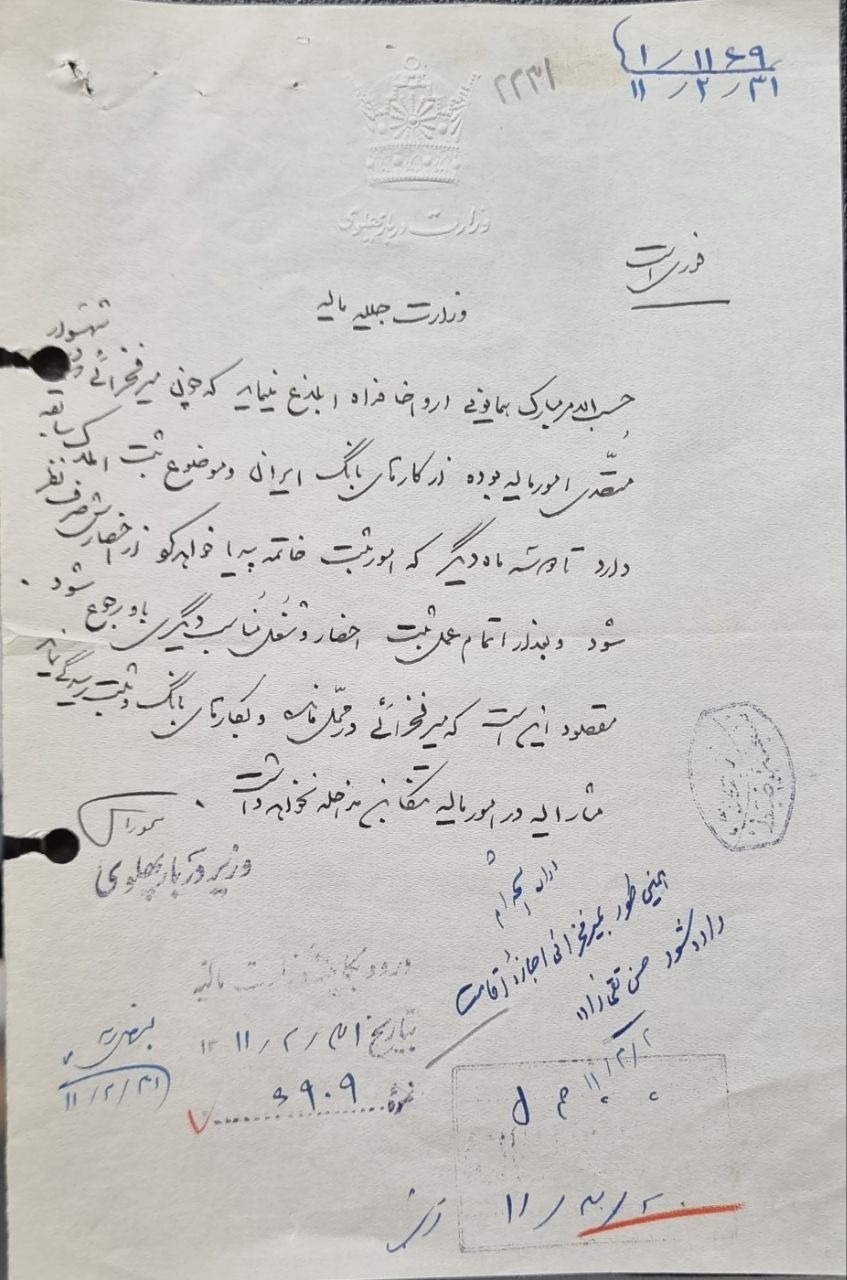 ۱۱۶۹ / ۱
۳۱ / ۲ / ۱۱
۲۲۳۱
وزارت دربار پهلوی
فوری است
وزارت جلیله مالیه
حسب الامر مبارک همایونی ارواحنا فداه ابلاغ مینماید که چون میرفخرائی در شهسوار
متصدی امور مالیه بوده از کارهای بانک ایران و موضوع ثبت املاک سابقه
دارد تا دو سه ماه دیگر که امور ثبت خاتمه پیدا خواهد کرد از احضارش صرف نظر
شود و بعد از اتمام عمل ثبت احضار و شغل مناسب دیگری باو رجوع شود .
مقصود این است که میرفخرائی در محل مانده و بکارهای بانک و ثبت رسیدگی نماید
مشارالیه در امور مالیه مداخله نخواهد داشت .
وزیر دربار پهلوی
همین طور بمیرفخرائی اجازه اقامت
داده شود حسن تقی زاده
۱۱/۳/۲
ورود بکابینه وزارت مالیه
بتاریخ ۳۱ / ۲ / ۱۱ ۱۳
نمره ۶۹۰۹
۱۱/۲/۳۱
۱۱ / ۳ / ۲